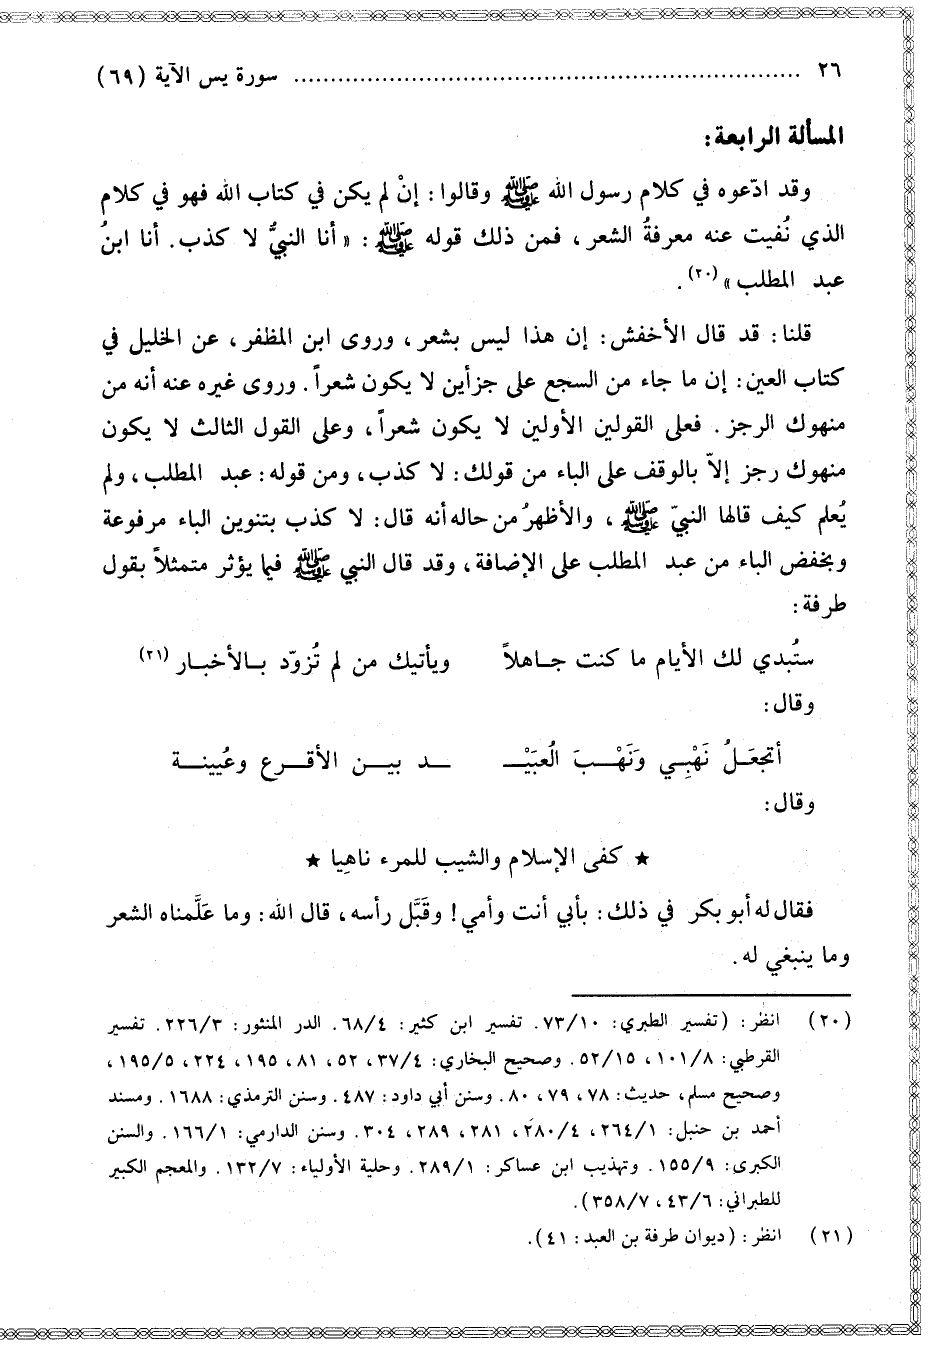 ٢٦ ........................................................................ سورة يس الآية (٦٩)
المسألة الرابعة:
وقد ادّعوه في كلام رسول الله ﷺ وقالوا: إنْ لم يكن في كتاب الله فهو في كلام
الذي نُفيت عنه معرفةُ الشعر، فمن ذلك قوله ﷺ: «أنا النبيُّ لا كذب. أنا ابنُ
عبد المطلب» (٢٠).
قلنا: قد قال الأخفش: إن هذا ليس بشعر، وروى ابن المظفر، عن الخليل في
كتاب العين: إن ما جاء من السجع على جزأين لا يكون شعراً. وروى غيره عنه أنه من
منهوك الرجز. فعلى القولين الأولين لا يكون شعراً، وعلى القول الثالث لا يكون
منهوك رجز إلاّ بالوقف على الباء من قولك: لا كذب، ومن قوله: عبد المطلب، ولم
يُعلم كيف قالها النبيّ ﷺ، والأظهرُ من حاله أنه قال: لا كذب بتنوين الباء مرفوعة
وبخفض الباء من عبد المطلب على الإضافة، وقد قال النبي ﷺ فيما يؤثر متمثلاً بقول
طرفة:
ستُبدي لك الأيام ما كنت جاهلاً ويأتيك من لم تُزوّد بالأخبار (٢١)
وقال:
أتجعَلُ نَهْبِي وَنَهْبَ الْعبَيْـ ـد بين الأقرع وعُيينة
وقال:
★ كفى الإسلام والشيب للمرء ناهِيا ★
فقال له أبو بكر في ذلك: بأبي أنت وأمي! وقَبَّل رأسه، قال الله: وما عَلَّمناه الشعر
وما ينبغي له.
(٢٠) انظر: (تفسير الطبري: ٧٣/١٠. تفسير ابن كثير: ٦٨/٤. الدر المنثور: ٢٢٦/٣. تفسير
القرطبي: ١٠١/٨، ٥٢/١٥. وصحيح البخاري: ٣٧/٤، ٥٢، ٨١، ١٩٥، ٢٢٤، ١٩٥/٥،
وصحيح مسلم، حديث: ٧٨، ٧٩، ٨٠. وسنن أبي داود: ٤٨٧. وسنن الترمذي: ١٦٨٨. ومسند
أحمد بن حنبل: ٢٦٤/١، ٢٨٠/٤، ٢٨١، ٢٨٩، ٣٠٤. وسنن الدارمي: ١٦٦/١. والسنن
الكبرى: ١٥٥/٩. وتهذيب ابن عساكر: ٢٨٩/١. وحلية الأولياء: ١٣٢/٧. والمعجم الكبير
للطبراني: ٤٣/٦، ٣٥٨/٧).
(٢١) انظر: (ديوان طرفة بن العبد: ٤١).